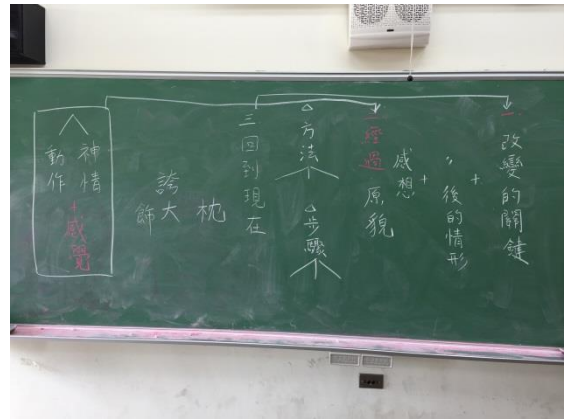 一改變的關鍵
+
〃後的情形
+
感想
二經過原貌
△方法
△步驟
三回到現在
枕
誇大
飾
神情
動作
+感覺